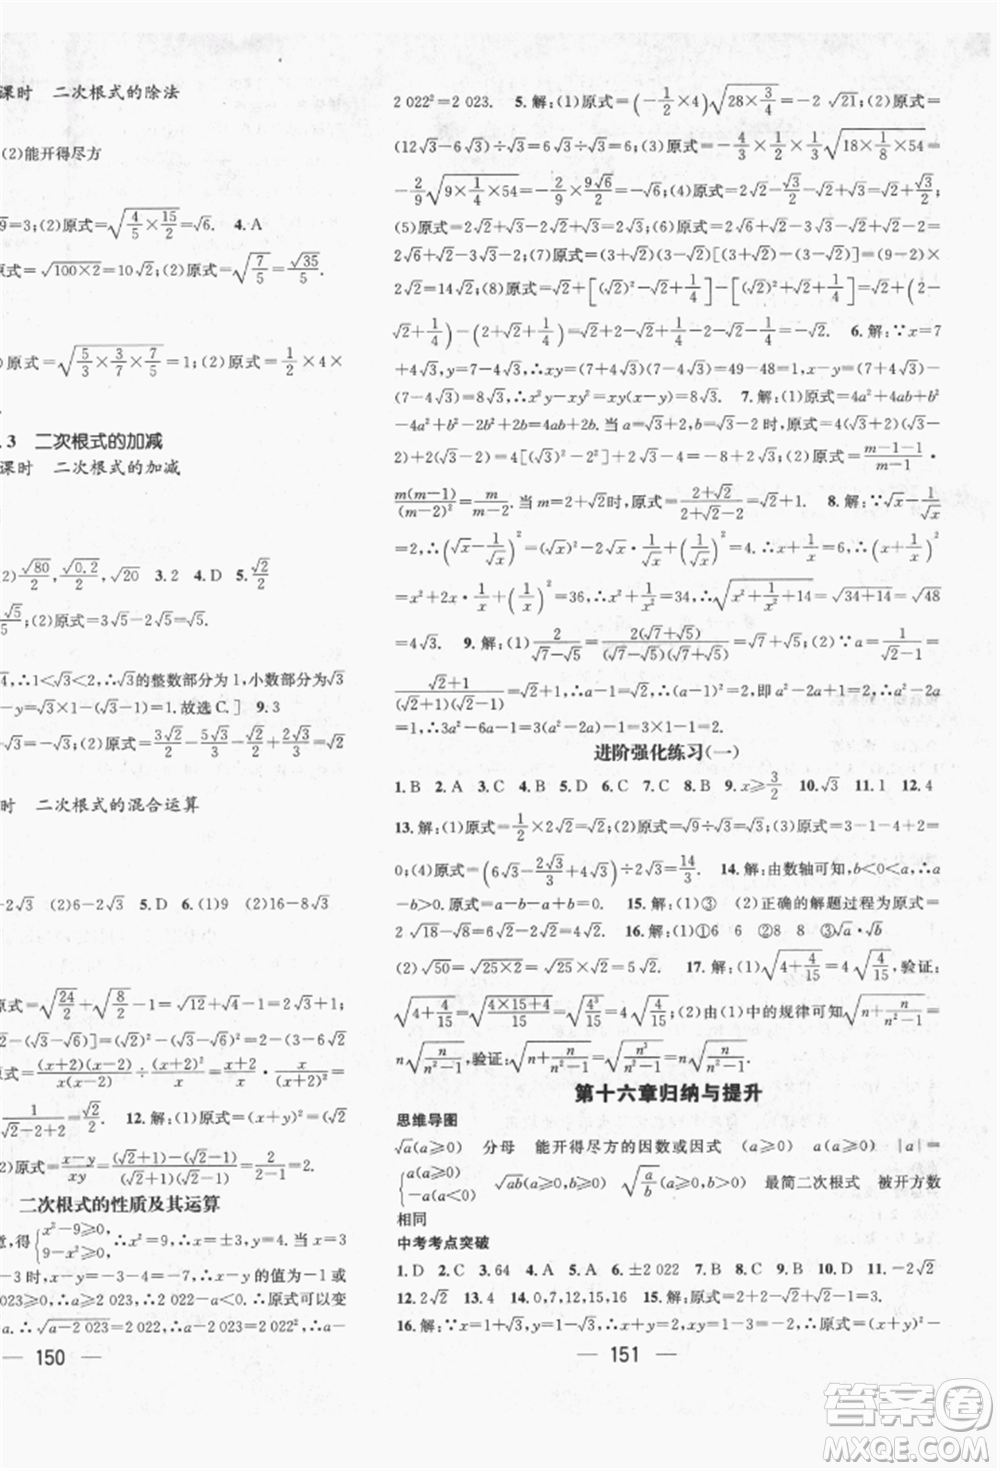 课时 二次根式的除法
(2)能开得尽方
√9=3;(2)原式=√(4/5×15/2)=√6. 4.A
原式=√(100×2)=10√2;(2)原式=√(7/5)=√35/5.
)原式=√(5/3×3/7×7/5)=1;(2)原式=1/2×4×
.3 二次根式的加减
课时 二次根式的加减
(2)√80/2,√0.2/2,√20 3.2 4.D 5.√2/2
√5/5;(2)原式=3√5-2√5=√5.
√4,∴1<√3<2,∴√3的整数部分为1,小数部分为√3
-√3=√3-√3+1=1.故选C.] 9.3
-√3=0;(2)原式=3√2/2-5√3/3-√2+√3=√2/2
时 二次根式的混合运算
-2√3 (2)6-2√3 5.D 6.(1)9 (2)16-8√3
原式=√(24/2)+√(8/2)-1=√12+√4-1=2√3+1;
2-(√3-√6)[-(√3-√6)]=2√2+(√3-√6)²=
原式=(x+2)(x-2)/x(x-2)÷(x+2)²/x=(x+2)/x·x/(x+2)²=
1/√5=√5/5. 12.解:(1)原式=(√2+1)(√2-1)=
(2)原式=(x-y)/xy=((√2+1)-(√2-1))/((√2+1)(√2-1))=2/(2-1)=2.
二次根式的性质及其运算
意,得{x²-9≥0, 9-x²≥0,∴x²=9,∴x=±3,y=4.当x=3
-3时,x-y=-3-4=-7.∴x-y的值为-1或
023≥0,∴a≥2 023,∴2 022-a<0.∴原式可以变
a.∴√(a-2 023)=2 022,∴a-2 023=2 022²,∴a-
— 150 —
2 022²=2 023. 5.解:(1)原式=(-1/2×4)√(28×3/4)=-2√21;(2)原式=
(12√3-6√3)÷√3=6√3÷√3=6;(3)原式=-4/3×1/2×1/3√(18×1/8×54)=
-2/9√(9×1/4×54)=-2/9×9√6/2=-√6;(4)原式=2√2-1/2√2=3/2√2;
(5)原式=2√2+√3-√2+√3=√2+2√3;(6)原式=2√3+4√2-2√3-
2√2+√6=2√2+√6;(7)原式=(3+√2)(3-√2)[-(3-√2)]=(9-2)×
(√2-3)=7√2-21;(8)原式=√2+[(√2)²-√2+1/4]-[(√2)²+√2+1/4]=√2+(2-
√2+1/4)-(2+√2+1/4)=√2+2-√2+1/4-2-√2-1/4=-√2. 6.解:∵x=7
+4√3,y=7-4√3,∴xy=(7+4√3)(7-4√3)=49-48=1,x-y=7+4√3-
(7-4√3)=8√3,∴x²y-xy²=xy(x-y)=8√3. 7.解:(1)原式=4a²+4ab+b²
-4a²+b²=4ab+2b².当a=√3+2,b=√3-2时,原式=4(√3+2)(√3-2)+
2(√3-2)²=4[(√3)²-2²]+2(3-4√3+4)=10-8√3;(2)原式=(m-1-1)/(m-1)÷
(m-2)²/m(m-1)=(m-2)/(m-1)·m(m-1)/(m-2)²=m/(m-2).当m=2+√2时,原式=(2+√2)/(2+√2-2)=√2+1. 8.解:∵√x-1/√x
=2,∴(√x-1/√x)²=x+1/x-2=4,∴x+1/x=6,∴(x+1/x)²
=x²+2x·1/x+(1/x)²=36,∴x²+1/x²=34.∴√(x²+1/x²+14)=√(34+14)=√48
=4√3. 9.解:(1)2/(√7-√5)=2(√7+√5)/((√7-√5)(√7+√5))=√7+√5;(2)∵a=1/(√2-1)=
(√2+1)/((√2+1)(√2-1))=√2+1,∴a-1=√2,∴(a-1)²=2,即a²-2a+1=2,∴a²-2a
=1,∴3a²-6a-1=3(a²-2a)-1=3-1=2.
进阶强化练习(一)
1.B 2.A 3.B 4.A 5.D 6.C 7.B 8.B 9.x≥3/2 10.√3 11.1 12.4
13.解:(1)原式=1/2×2√2=√2;(2)原式=√9÷√3=√3;(3)原式=4√3-4√3=
0;(4)原式=(6√3-2√3/3+4√3)÷2√3=14/3. 14.解:由数轴可知,b<0<a,∴a
-b>0.原式=a-b-a+b=0. 15.(1)③ (2)正确的解题过程为原式=
2√18-√8=6√2-2√2=4√2. 16.解:(1)①6 6 ②8 8 ③√a·√b
(2)√50=√(25×2)=√25×√2=5√2. 17.解:(1)√(4+4/15)=4√(4/15),验证:
√(4+4/15)=√((4×15+4)/15)=√(4³/15)=4√(4/15);(2)由(1)中的规律可知√(n+n/(n²-1))=
n√(n/(n²-1)),验证:√(n+n/(n²-1))=√(n³/(n²-1))=n√(n/(n²-1)).
第十六章归纳与提升
思维导图
√a(a≥0) 分母 能开得尽方的因数或因式 (a≥0) a(a≥0) |a|=
{a(a≥0) -a(a<0) √ab(a≥0,b≥0) √(a/b)(a≥0,b>0) 最简二次根式 被开方数
相同
中考考点突破
1.D 2.C 3.64 4.A 5.A 6.±2 022 7.B 8.A 9.A 10.D 11.-2√2
12.2√2 13.4 14.0,7,12,15,16 15.解:原式=2√2-√2+1-√2+2=3.
16.解:∵x=1+√3,y=1-√3,∴x+y=2,xy=-2,x-y=2√3.(1)原式=
— 151 —
答案圈
MXQE.COM